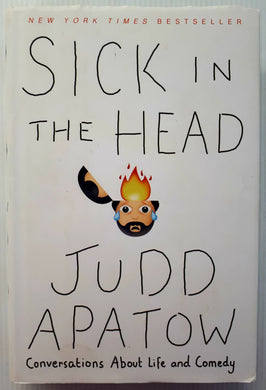 NEW YORK TIMES BESTSELLER
SICK IN
THE HEAD
JUDD
APATOW
Conversations About Life and Comedy